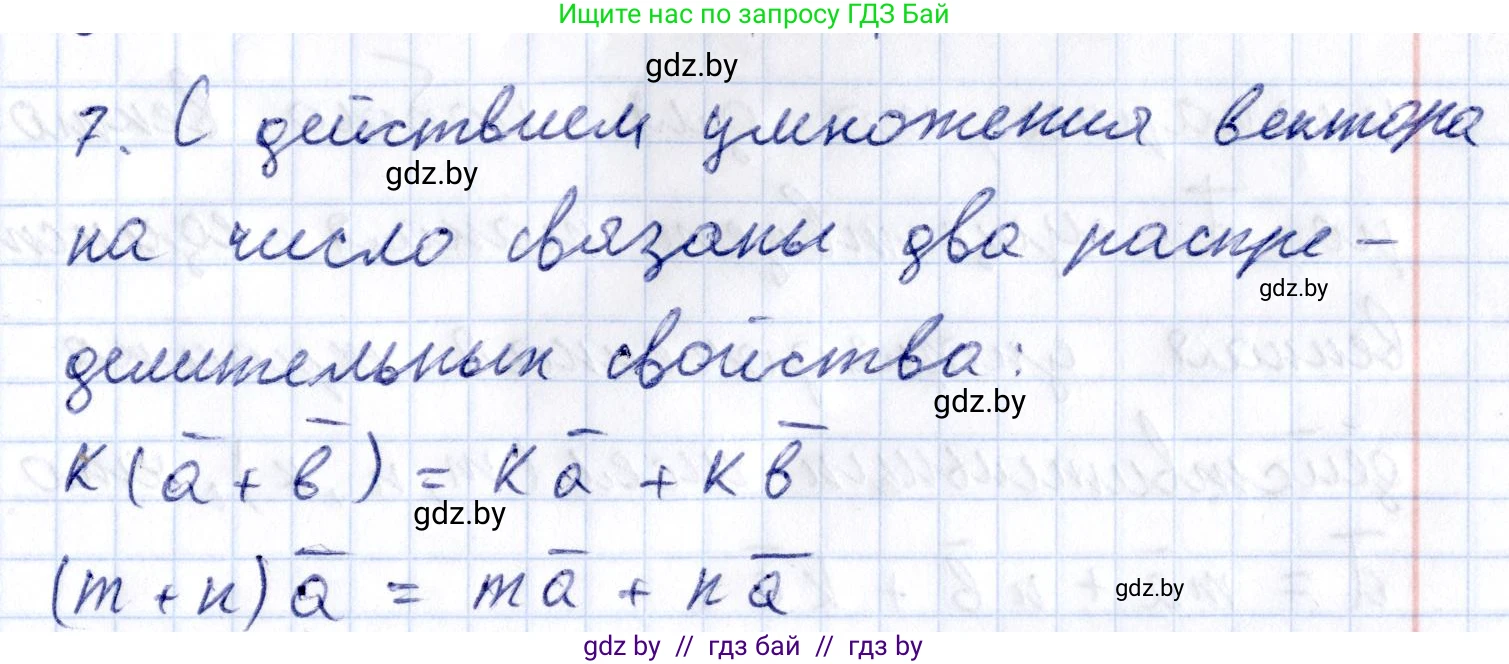 Ищите нас по запросу ГДЗ Бай
gdz.by
7. С действием умножения вектора
gdz.by
на число связаны два распре-
gdz.by
делительных свойства:
gdz.by
k(a̅ + b̅) = ka̅ + kb̅
gdz.by
(m + n)a̅ = ma̅ + na̅
gdz.by
gdz by // гдз бай // гдз by